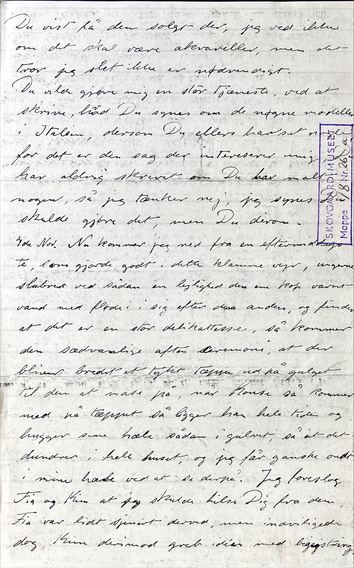 Du vist få den solgt der, jeg ved ikke
om det skal være akvareller, men det
tror jeg slet ikke er nødvendigt.
Du vilde gjøre mig en stor tjeneste, ved at
skrive, hvad Du synes om de nøgne modeller
i Italien, dersom Du ellers har set
for det er den sag der interesserer mig
har aldrig skrevet om Du har malt
nogen, så jeg tænker nej, jeg synes
skulde gjøre det men Du derom.
Nov. Nu kommer jeg ned fra en eftermiddags
te, som gjorde godt i dette klamme vejr, ungerne
slubrer ved sådan en lejlighed den en kop varmt
vand med fløde i i sig efter den anden, og finder
at det er en stor delikatesse, så kommer
den sædvanlige aften ceremoni, at der
bliver bredt et tykt tæppe ud på gulvet
til den at mase på, når Konse så kommer
ned på tæppet så ligger han hele tiden og
hugger sine hæle sådan i gulvet, så at det
dundrer i hele huset, og jeg får ganske ondt
i mine hæle ved at se derpå. Jeg foreslog
Fia og Kun at jeg skulde hilse Dig fra dem,
Fia var lidt derved, men indvilligede
dog, Kun derimod greb idéen med begejstring,
SKOVGAARD MUSEET
Mappe 8 Nr.